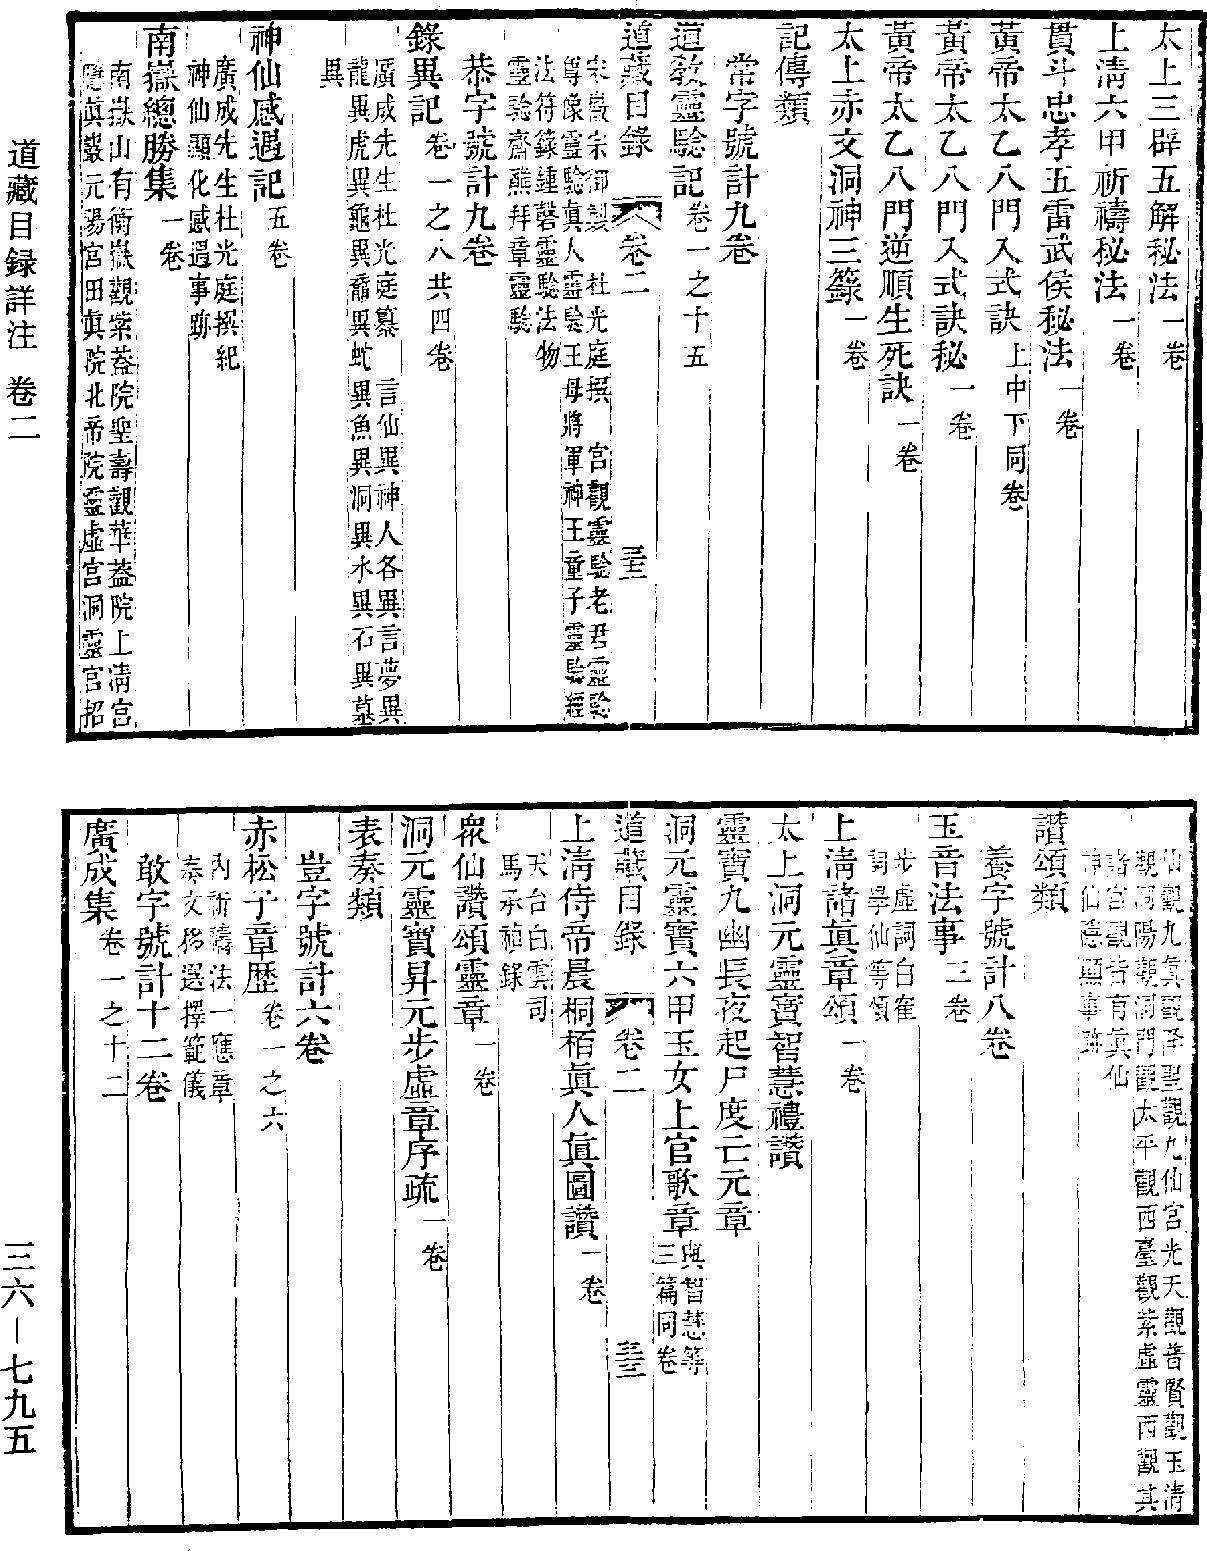 太上三辟五解秘法一卷
上淸六甲祈禱秘法一卷
貫斗忠孝五雷武侯秘法一卷
黃帝太乙八門入式訣上中下同卷
黃帝太乙八門入式訣秘一卷
黃帝太乙八門逆順生死訣一卷
太上赤文洞神三籙一卷
記傳類
常字號計九卷
道敎靈驗記卷一之十五
道藏目錄 卷二 三三
宋徽宗御製 杜光庭撰 宫觀靈驗老君靈驗
尊像靈驗眞人靈驗王母將軍神王童子靈驗經
法符籙鍾磬靈驗法物
靈驗齋醮拜章靈驗
恭字號計九卷
錄異記卷一之八共四卷
廣成先生杜光庭纂 言仙異神人各異言夢異
龍異虎異龜異黿異蛇異魚異洞異水異石異墓
異
神仙感遇記五卷
廣成先生杜光庭撰紀
神仙顯化感遇事跡
南嶽總勝集一卷
南嶽山有衡嶽觀紫葢院聖壽觀華葢院上淸宫
隱眞巖元陽宫田眞院北帝院靈虛宫洞靈宫招
仙觀九眞觀降聖觀九仙宫光天觀普賢觀玉淸
觀洞陽觀洞門觀太平觀西臺觀紫虛靈西觀其
諸宫觀皆有眞仙
神仙隱顯事跡
讚頌類
養字號計八卷
玉音法事三卷
步虛詞白崔
詞學仙等頌
上淸諸眞章頌一卷
太上洞元靈寶智慧禮讚
靈寶九幽長夜起尸度亡元章
洞元靈寶六甲玉女上官歌章與智慧等
三篇同卷
道藏目錄 卷二 三三
上淸侍帝晨桐栢眞人眞圖讚一卷
天台白雲司
馬承禎錄
衆仙讚頌靈章一卷
洞元靈寶昇元步虛章序疏一卷
表奏類
豈字號計六卷
赤松子章歷卷一之六
內祈禱法一應章
奏文移選擇範儀
敢字號計十二卷
廣成集卷一之十二
道藏目録詳注 卷二
三六—七九五